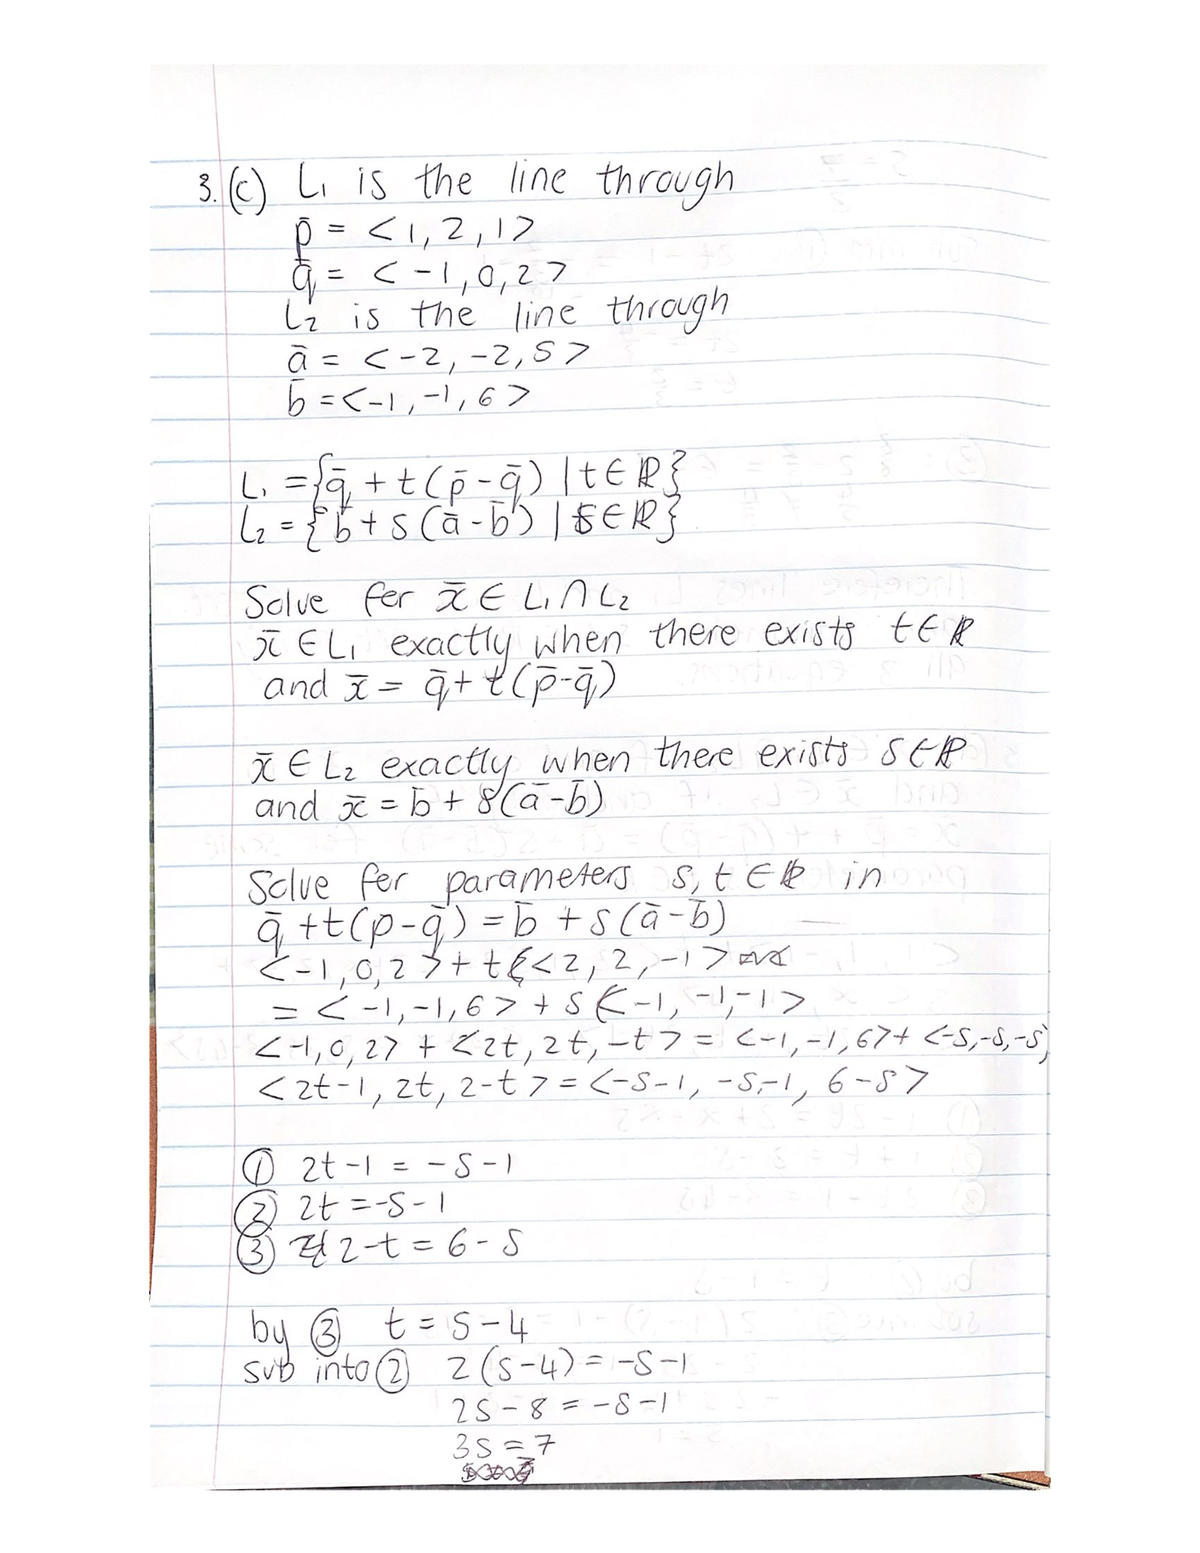 3. (c) L₁ is the line through
p̄ = <1, 2, 1>
q̄ = <-1, 0, 2>
L₂ is the line through
ā = <-2, -2, 5>
b̄ = <-1, -1, 6>
L₁ = {q̄ + t(p̄-q̄) | t∈ℝ}
L₂ = {b̄ + s(ā-b̄) | s∈ℝ}
Solve for x̄ ∈ L₁∩L₂
x̄ ∈ L₁ exactly when there exists t∈ℝ
and x̄ = q̄ + t(p̄-q̄)
x̄ ∈ L₂ exactly when there exists s∈ℝ
and x̄ = b̄ + s(ā-b̄)
Solve for parameters s, t ∈ℝ in
q̄ + t(p-q̄) = b̄ + s(ā-b̄)
<-1, 0, 2> + t<2, 2, -1>
= <-1, -1, 6> + s<-1, -1, -1>
<-1, 0, 2> + <2t, 2t, -t> = <-1, -1, 6> + <-s, -s, -s>
<2t-1, 2t, 2-t> = <-s-1, -s-1, 6-s>
① 2t-1 = -s-1
② 2t = -s-1
③ 2-t = 6-s
by ③ t = s-4
sub into ② 2(s-4) = -s-1
2s-8 = -s-1
3s = 7